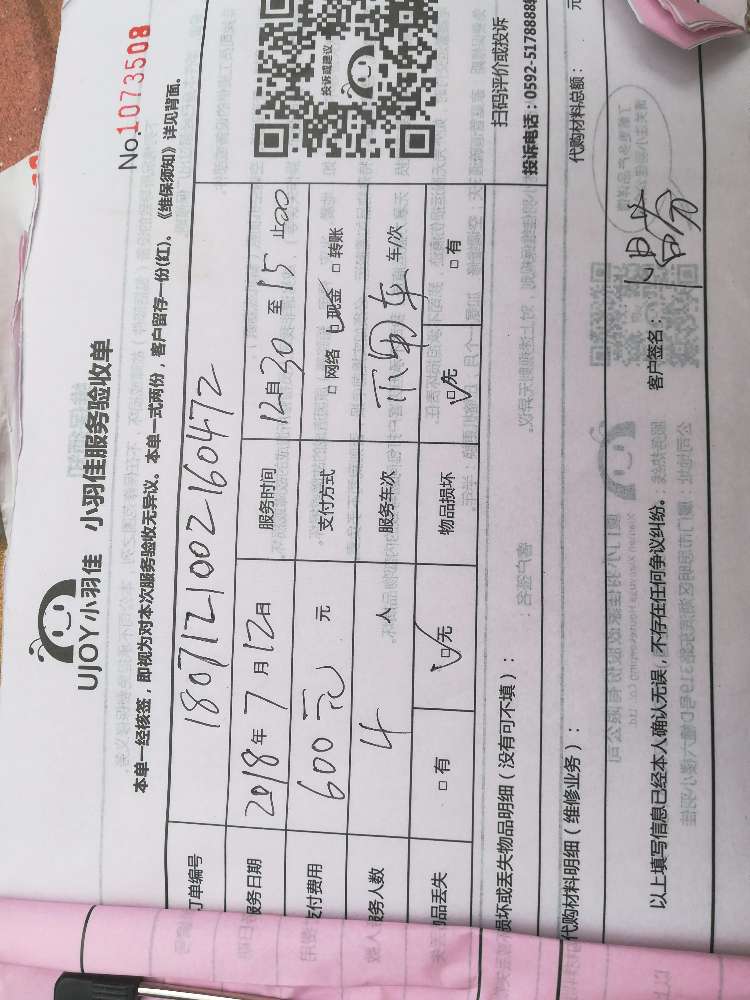 UJOY小羽佳 小羽佳服务验收单
No.1073508
本单一经核签，即视为对本次服务验收无异议。本单一式两份，客户留存一份(红)。《维保须知》详见背面。
订单编号 1807121002160472
服务日期 2018年7月12日 服务时间 12月30至15止00
支付费用 600元 元 支付方式 □网络 □现金 □转账
服务人数 4 人 服务车次 不用车 车/次
物品丢失 □有 □无 物品损坏 □无 □有
损坏或丢失物品明细（没有可不填）：
代购材料明细（维修业务）： 代购材料总额： 元
以上填写信息已经本人确认无误，不存在任何争议纠纷。 客户签名：
投诉或建议
扫码评价或投诉
投诉电话：0592-5178888